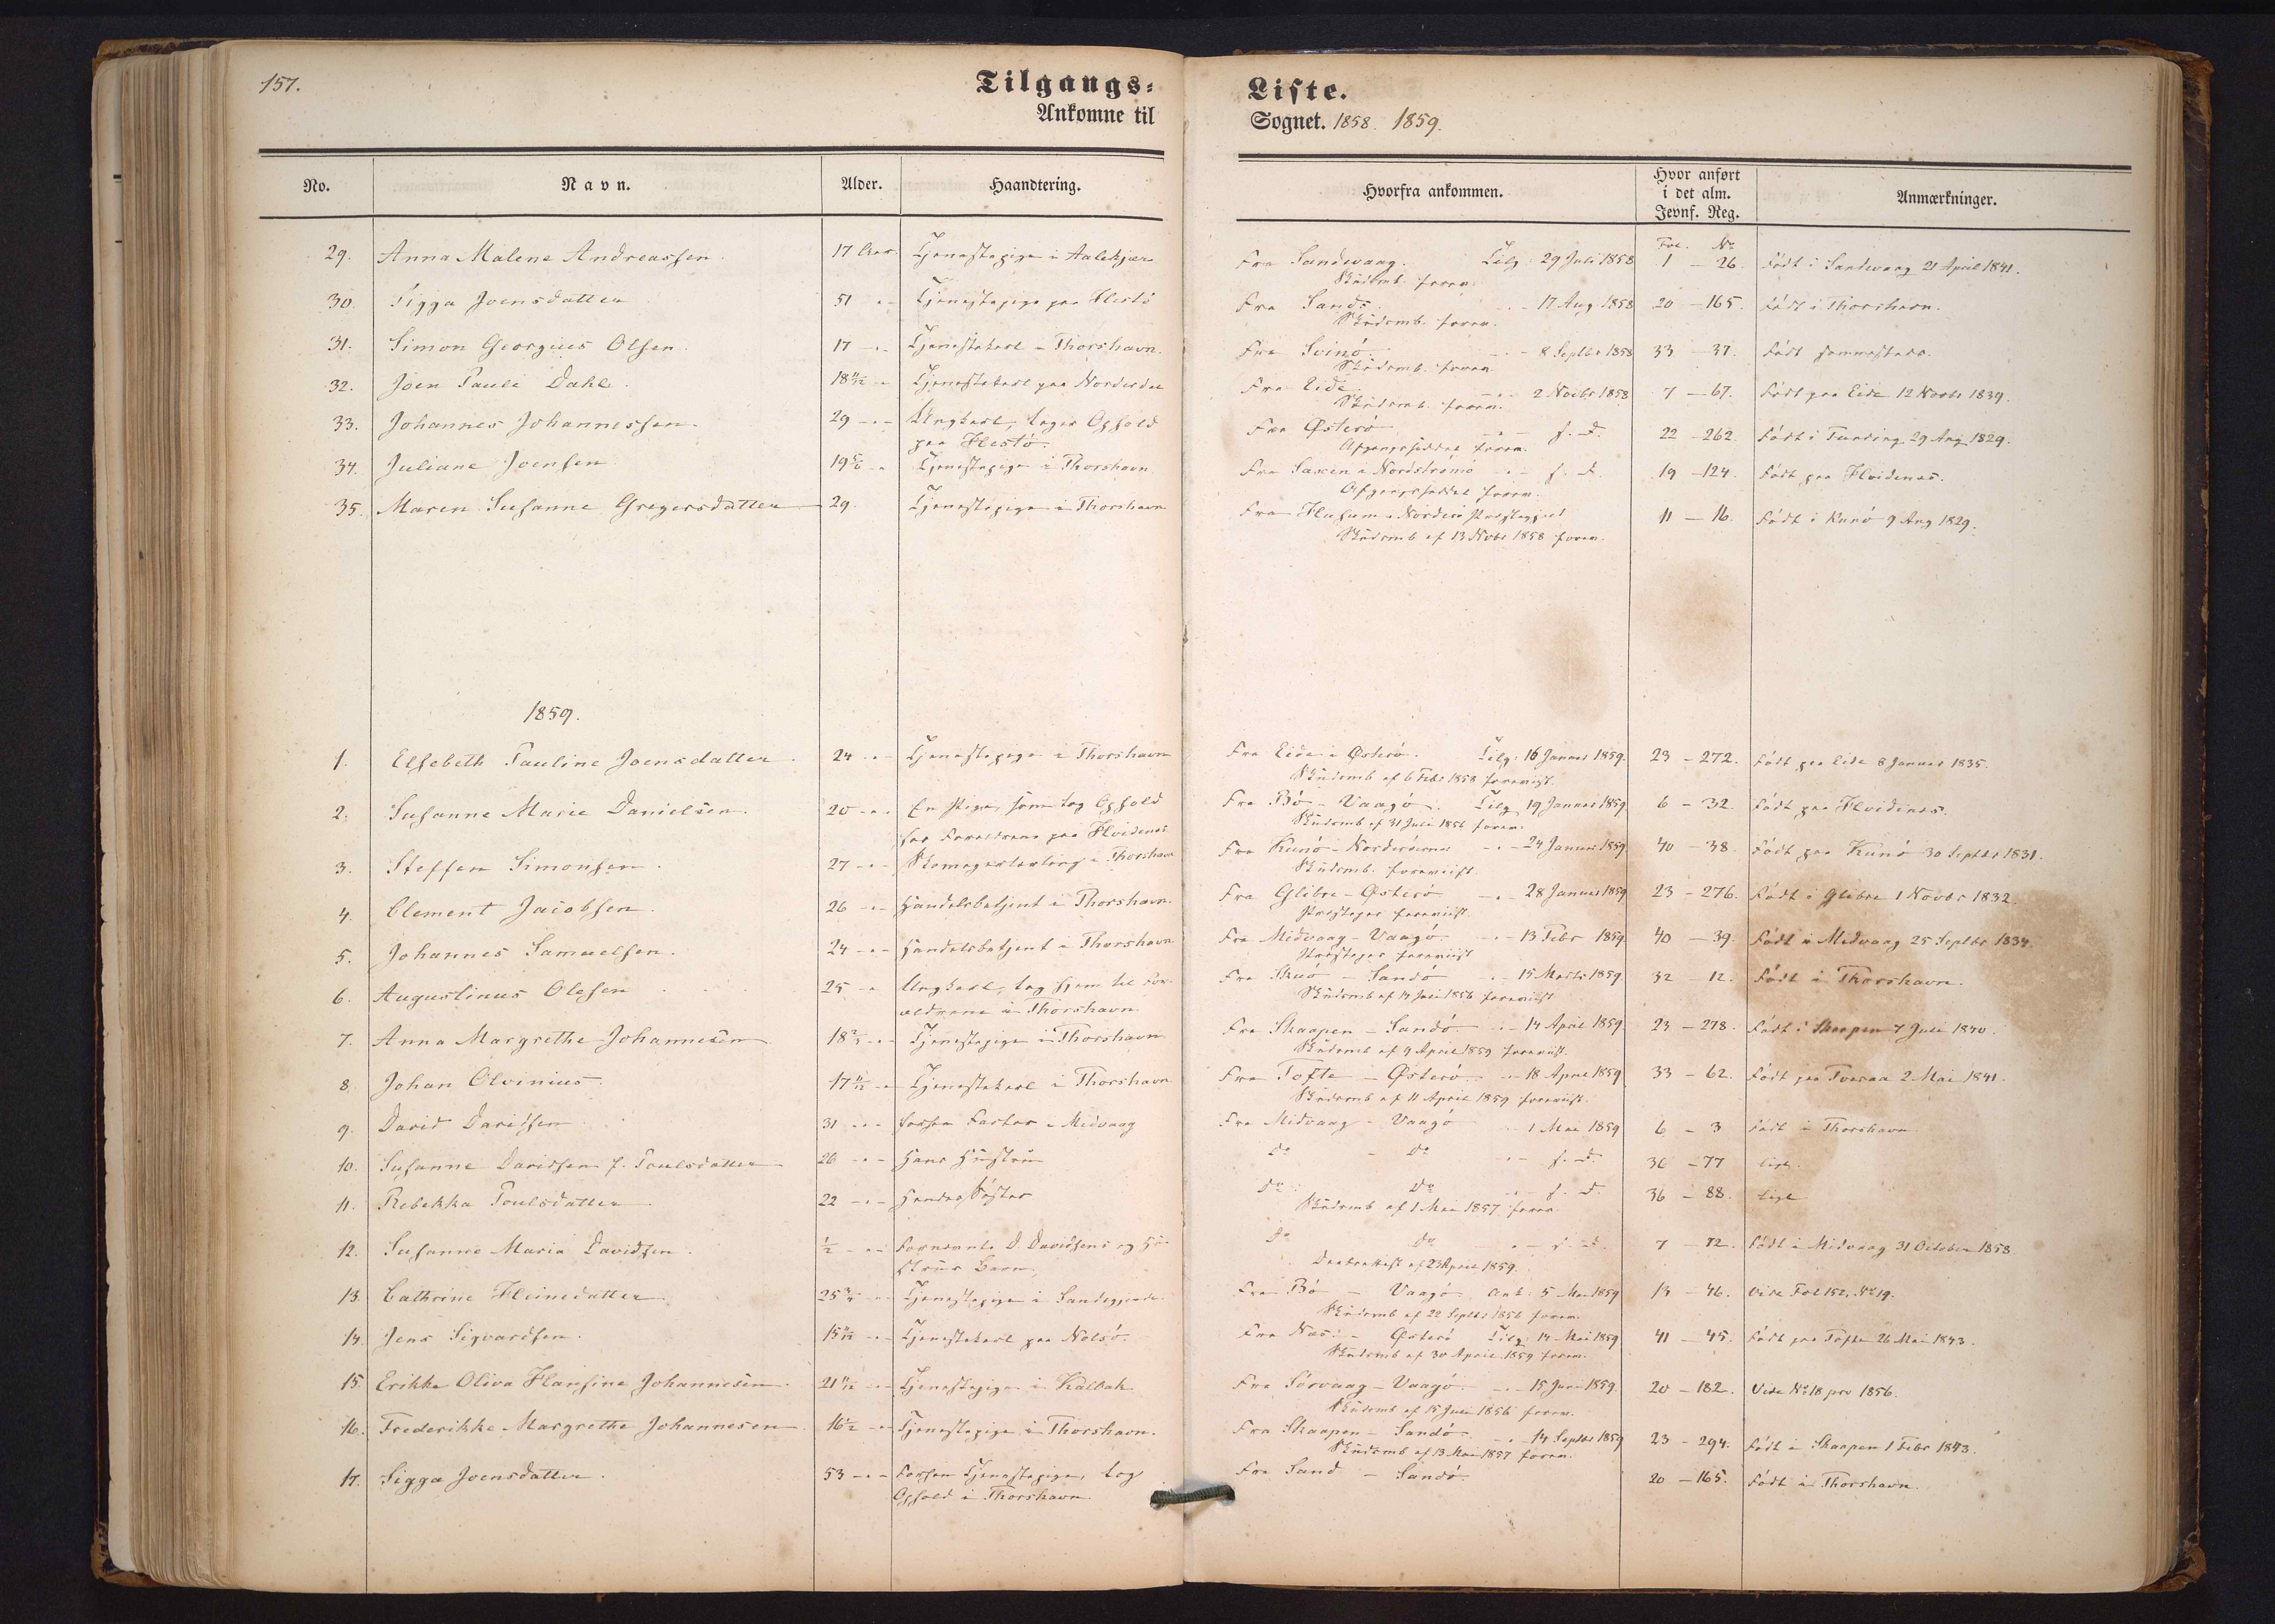 157.
Tilgangs-Liste.
Ankomne til Sognet. 1858. 1859.
No. Navn. Alder. Haandtering. Hvorfra ankommen. Hvor anført i det alm. Jevnf. Reg. Anmærkninger.
Fol. No
29. Anna Malene Andreassen. 17 Aar. Tjenestepige i Fra Sandevaag. Tilg. 29 Juli 1858 1 - 26. Født i Sandevaag 21 April 1841.
Skudsmb. forev.
30. Sigga Joensdatter 51 -"- Tjenestepige paa Hestö Fra Sands. -"- 17 Aug 1858 20 - 165. Født i Thorshavn.
Skudsmb. forev.
31. Simon Georgius Olsen. 17 -"- Tjenestekarl - Thorshavn. Fra Svinö. -"- 8 Septbr 1858 33 - 37. Født sammesteds.
Skudsmb. forev.
32. Joen Pauli Dahl. 18 11/12 -"- Tjenestekarl paa Fra Eide -"- 2 Novbr 1858 7 - 67. Født paa Eide 12 Novbr 1839.
Skudsmb. forev.
33. Johannes Johannessen. 29 -"- Ungkarl, tager Ophold Fra Østerö -"- s. D. 22 - 262. Født i Funding 29 Aug 1829.
paa Hestö. Afgangsseddel forev.
34. Juliane Joensen. 19 Tjenestepige i Thorshavn Fra Saxen i Nordströmö -"- s. D. 19 - 124. Født paa Hvidenæs.
Afgangsseddel forev.
35. Maren Susanne Gregersdatter 29. Tjenestepige i Thorshavn Fra Husum i Norderö Præstegjeld 11 - 16. Født i Kunö 9 Aug 1829.
Skudsmb af 13 Novbr 1858 forev.
1859.
1. Elsebeth Pauline Joensdatter. 24 -"- Tjenestepige i Thorshavn Fra Eide i Østerö. Tilg. 16 Januar 1859. 23 - 272. Født paa Eide 8 Januar 1835.
Skudsmb af 6 Febr 1858 foreviist.
2. Susanne Marie Danielsen. 20 -"- En Pige, som tog Ophold Fra Bö - Vaagö. Tilg. 19 Januar 1859 6 - 32. Født paa Hvidenæs.
hos Forældrene paa Hvidenæs Skudsmb af 31 Juli 1856 forev.
3. Steffen Simonsen. 27 -"- Skomagerlærling i Thorshavn Fra Kunö - Norderöerne -"- 24 Januar 1859 40 - 38. Født paa Kunö 30 Septbr 1831.
Skudsmb. foreviist
4. Clement Jacobsen. 26 -"- Handelsbetjent i Thorshavn. Fra Glibre - Østerö -"- 28 Januar 1859 23 - 276. Født i Glibre 1 Novbr 1832.
foreviist.
5. Johannes Samuelsen. 24 -"- Handelsbetjent i Thorshavn Fra Midvaag - Vaagö -"- 13 Febr 1859. 40 - 39. Født i Midvaag 25 Septbr 1834.
foreviist
6. Augustinus Olesen 25 -"- Ungkarl, tog hjem til For- Fra Skuö - Sandö -"- 15 Marts 1859 32 - 12. Født i Thorshavn.
ældrene i Thorshavn Skudsmb af 14 Juli 1856 foreviist
7. Anna Margrethe Johannesen 18 -"- Tjenestepige i Thorshavn Fra Skaapen - Sandö. -"- 14 April 1859. 23 - 278. Født i Skaapen 7 Juli 1840.
Skudsmb af 9 April 1859 foreviist.
8. Johan Olvinius. 17 11/12 -"- Tjenestekarl i Thorshavn Fra Tofte - Østerö -"- 18 April 1859 33 - 62. Født paa Tveraa 2 Mai 1841.
Skudsmb af 11 April 1859 foreviist.
9. David Davidsen. 31 -"- i Midvaag Fra Midvaag - Vaagö 1 Mai 1859 6 - 3 Født i Thorshavn
10. Susanne Davidsen f. Poulsdatter 26 -"- Hans Hustru Do - Do -"- s. D. 36 - 77 lige.
11. Rebekka Poulsdatter 22 -"- Hendes Søster Do Do -"- s. D. 36 - 88. lige
Skudsmb af 1 Mai 1857 forev.
12. Susanne Maria Davidsen. 1/2 -"- Fornævnte D. Davidsens og Hu- Do Do -"- s. D. 7 - 72. Født i Midvaag 31 October 1858.
strues Barn. Daabsattest af 23 April 1859.
13. Cathrine Heinedatter 25 3/4 -"- Tjenestepige i Sandegjerde Fra Bö - Vaagö. Ank: 5 Mai 1859 13 - 46. Vide Fol 152, No 19.
Skudsmb af 22 Septbr 1856 forev.
14. Jens Sigvardsen. 15 11/12 -"- Tjenestekarl paa Nolsö. Fra Næs - Østerö Tilg. 14 Mai 1859 41 - 45. Født paa Tofte 26 Mai 1843.
Skudsmb af 30 April 1859 forev.
15. Erikke Oliva Hansine Johannesen. 21 -"- Tjenestepige i Kalbak Fra Sörvaag - Vaagö. -"- 15 Juni 1859. 20 - 182. Vide No 18 pro 1856.
Skudsmb af 15 Juli 1856 forev.
16. Frederikke Margrethe Johannesen 16 1/2 -"- Tjenestepige i Thorshavn. Fra Skaapen - Sandö. -"- 14 Septbr 1859 23 - 294. Født i Skaapen 1 Febr 1843.
Skudsmb af 13 Mai 1857 forev.
17. Sigga Joensdatter. 53 -"- Forhen Tjenestepige, tog Fra Sand - Sandö. 20 - 165. Født i Thorshavn.
Ophold i Thorshavn.